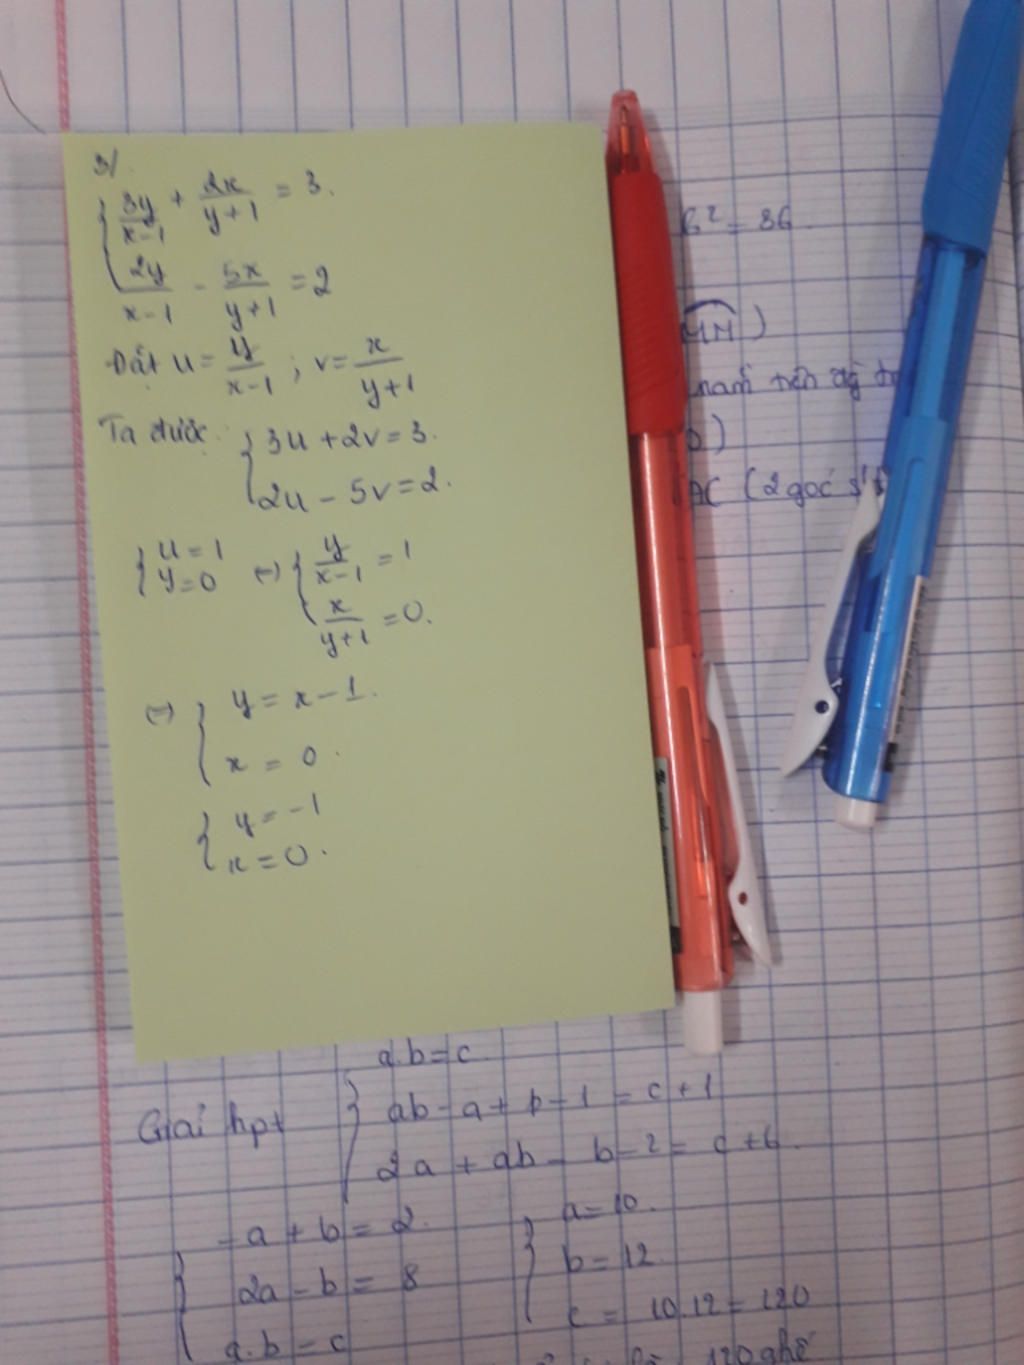 3/.
3y/x-1 + 2x/y+1 = 3.
2y/x-1 - 5x/y+1 = 2
Đặt u = y/x-1 ; v = x/y+1
Ta được: 3u + 2v = 3.
2u - 5v = 2.
u = 1
y = 0 (=) y/x-1 = 1
x/y+1 = 0.
(=) y = x - 1.
x = 0.
y = -1
x = 0.
6² = 36.
nằm trên
AC (2 góc
a.b = c
Giải hpt ab - a + b - 1 = c + 1
2a + ab - b - 2 = c + 6.
-a + b = 2.
2a - b = 8
a.b = c
a = 10.
b = 12.
c = 10.12 = 120
120 ghế